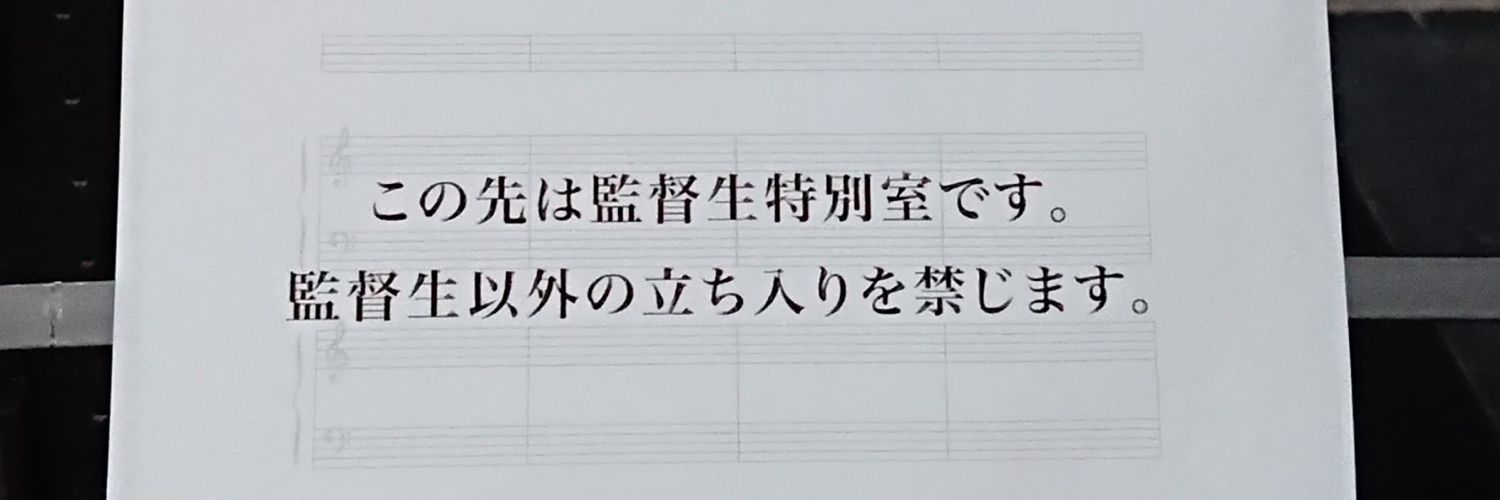 この先は監督生特別室です。
監督生以外の立ち入りを禁じます。